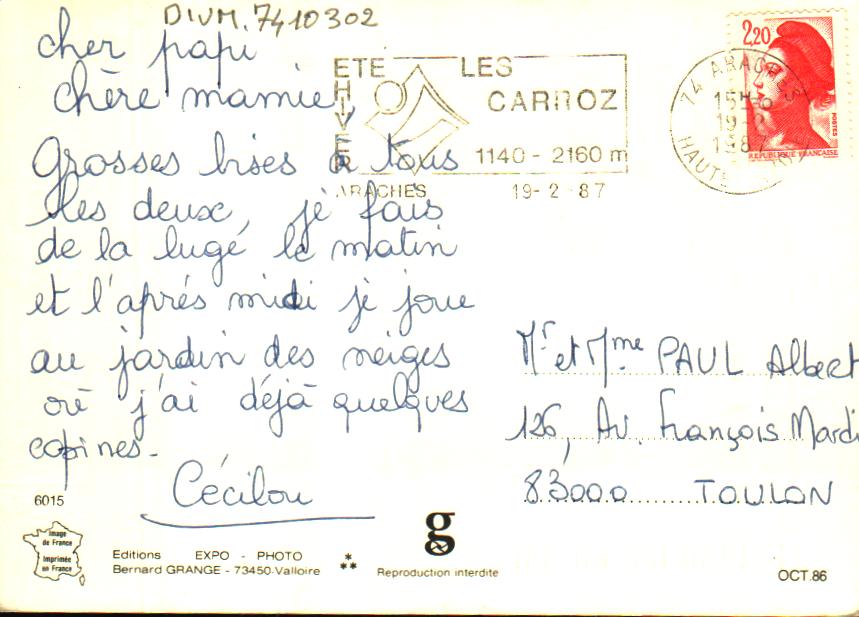 DIVM.7410302
cher papi
chère mamie,
Grosses bises à tous
les deux, je fais
de la luge le matin
et l'après midi je joue
au jardin des neiges
où j'ai déjà quelques
copines-
Cécilou
ETE LES
HIVER
CARROZ
1140 - 2160 m
ARACHES 19-2-87
74 ARACHES
15H
19-2
1987
HAUTE
2,20
POSTES
REPUBLIQUE FRANÇAISE
Mr et Mme PAUL Albert
126, Av. François Mardi
83000 TOULON
6015
Image
de France
Imprimée
en France
Editions EXPO - PHOTO
Bernard GRANGE - 73450-Valloire
*
**
g
Reproduction interdite
OCT.86